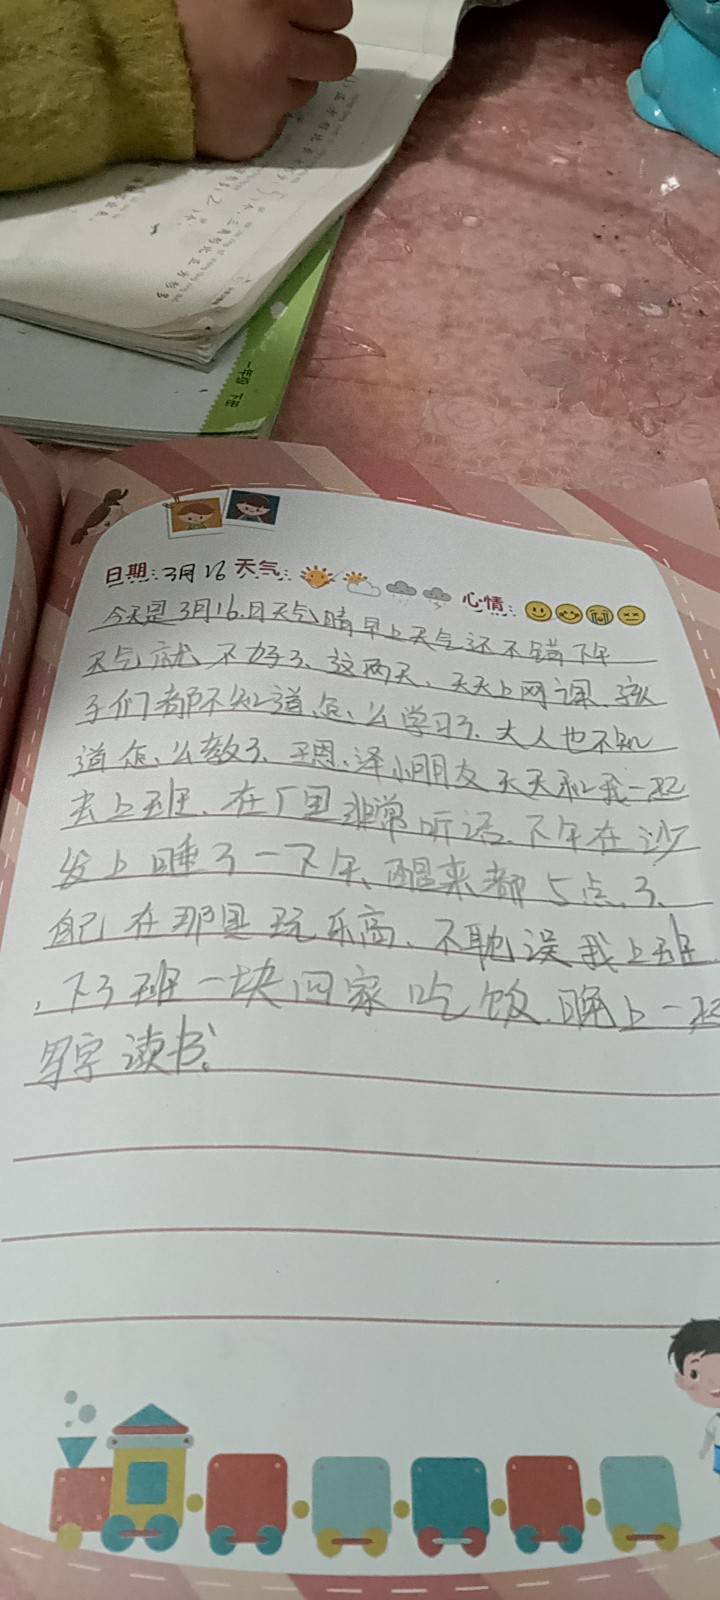 一年级 下册
日期:3月16 天气: 心情:
今天是3月16.日天气晴早上天气还不错下午
天气就不好了、这两天、天天上网课.孩
子们都不知道、怎、么学习了.大人也不知
道怎、么教了.子恩、泽小朋友天天和我一起
去上班、在厂里非常听话、下午在沙
发上睡了一下午、醒来都5点、了、
自己在那里玩乐高、不耽误我上班
、下了班一块回家吃饭.晚上一起
写字读书.